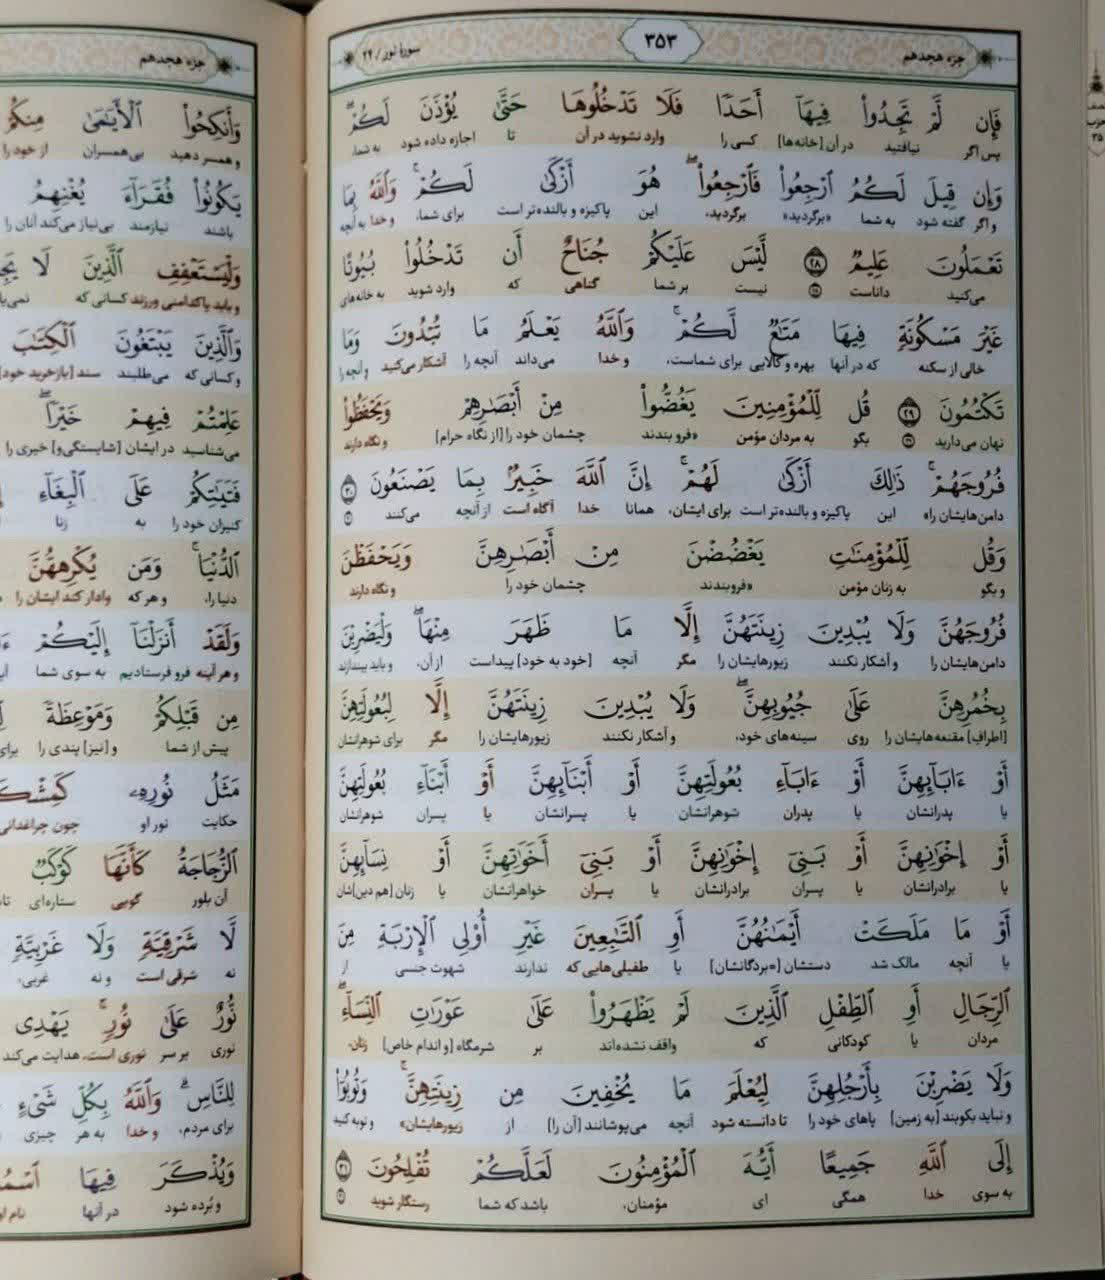 جزء هجدهم
۳۵۳
سورهٔ نور / ۲۴
فَإِن لَّمْ تَجِدُوا۟ فِيهَآ أَحَدًا فَلَا تَدْخُلُوهَا حَتَّىٰ يُؤْذَنَ لَكُمْ ۖ
پس اگر نیافتید در آن [خانه‌ها] کسی را وارد نشوید در آن تا اجازه داده شود به شما،
وَإِن قِيلَ لَكُمُ ٱرْجِعُوا۟ فَٱرْجِعُوا۟ ۖ هُوَ أَزْكَىٰ لَكُمْ ۚ وَٱللَّهُ بِمَا
و اگر گفته شود به شما «برگردید» برگردید، این پاکیزه و بالنده‌تر است برای شما، و خدا به آنچه
تَعْمَلُونَ عَلِيمٌ ۲۸ لَّيْسَ عَلَيْكُمْ جُنَاحٌ أَن تَدْخُلُوا۟ بُيُوتًا
می‌کنید داناست نیست بر شما گناهی که وارد شوید به خانه‌های
غَيْرَ مَسْكُونَةٍ فِيهَا مَتَـٰعٌ لَّكُمْ ۚ وَٱللَّهُ يَعْلَمُ مَا تُبْدُونَ وَمَا
خالی از سکنه که در آنها بهره و کالایی برای شماست، و خدا می‌داند آنچه را آشکار می‌کنید و آنچه را
تَكْتُمُونَ ۲۹ قُل لِّلْمُؤْمِنِينَ يَغُضُّوا۟ مِنْ أَبْصَـٰرِهِمْ وَيَحْفَظُوا۟
نهان می‌دارید بگو به مردان مؤمن «فرو بندند چشمان خود را [از نگاه حرام] و نگاه دارند
فُرُوجَهُمْ ۚ ذَٰلِكَ أَزْكَىٰ لَهُمْ ۗ إِنَّ ٱللَّهَ خَبِيرٌۢ بِمَا يَصْنَعُونَ ۳۰
دامن‌هایشان را» این پاکیزه و بالنده‌تر است برای ایشان، همانا خدا آگاه است از آنچه می‌کنند
وَقُل لِّلْمُؤْمِنَـٰتِ يَغْضُضْنَ مِنْ أَبْصَـٰرِهِنَّ وَيَحْفَظْنَ
و بگو به زنان مؤمن «فروبندند چشمان خود را و نگاه دارند
فُرُوجَهُنَّ وَلَا يُبْدِينَ زِينَتَهُنَّ إِلَّا مَا ظَهَرَ مِنْهَا ۖ وَلْيَضْرِبْنَ
دامن‌هایشان را و آشکار نکنند زیورهایشان را مگر آنچه [خود به خود] پیداست از آن، و باید بیندازند
بِخُمُرِهِنَّ عَلَىٰ جُيُوبِهِنَّ ۖ وَلَا يُبْدِينَ زِينَتَهُنَّ إِلَّا لِبُعُولَتِهِنَّ
[اطراف] مقنعه‌هایشان را روی سینه‌های خود، و آشکار نکنند زیورهایشان را مگر برای شوهرانشان
أَوْ ءَابَآئِهِنَّ أَوْ ءَابَآءِ بُعُولَتِهِنَّ أَوْ أَبْنَآئِهِنَّ أَوْ أَبْنَآءِ بُعُولَتِهِنَّ
یا پدرانشان یا پدران شوهرانشان یا پسرانشان یا پسران شوهرانشان
أَوْ إِخْوَٰنِهِنَّ أَوْ بَنِىٓ إِخْوَٰنِهِنَّ أَوْ بَنِىٓ أَخَوَٰتِهِنَّ أَوْ نِسَآئِهِنَّ
یا برادرانشان یا پسران برادرانشان یا پسران خواهرانشان یا زنان [هم دین]شان
أَوْ مَا مَلَكَتْ أَيْمَـٰنُهُنَّ أَوِ ٱلتَّـٰبِعِينَ غَيْرِ أُو۟لِى ٱلْإِرْبَةِ مِنَ
یا آنچه مالک شد دستشان [=بردگانشان] یا طفیلی‌هایی که ندارند شهوت جنسی از
ٱلرِّجَالِ أَوِ ٱلطِّفْلِ ٱلَّذِينَ لَمْ يَظْهَرُوا۟ عَلَىٰ عَوْرَٰتِ ٱلنِّسَآءِ ۖ
مردان یا کودکانی که واقف نشده‌اند بر شرمگاه [و اندام خاص] زنان،
وَلَا يَضْرِبْنَ بِأَرْجُلِهِنَّ لِيُعْلَمَ مَا يُخْفِينَ مِن زِينَتِهِنَّ ۚ وَتُوبُوٓا۟
و نباید بکوبند [به زمین] پاهای خود را تا دانسته شود آنچه می‌پوشانند [آن را] از زیورهایشان» و توبه کنید
إِلَى ٱللَّهِ جَمِيعًا أَيُّهَ ٱلْمُؤْمِنُونَ لَعَلَّكُمْ تُفْلِحُونَ ۳۱
به سوی خدا همگی ای مؤمنان، باشد که شما رستگار شوید
جزء هجدهم
وَأَنكِحُوا۟ ٱلْأَيَـٰمَىٰ مِنكُمْ
و همسر دهید بی‌همسران از خود را
يَكُونُوا۟ فُقَرَآءَ يُغْنِهِمُ
باشند نیازمند بی‌نیاز می‌کند آنان را
وَلْيَسْتَعْفِفِ ٱلَّذِينَ لَا
و باید پاکدامنی ورزند کسانی که
وَٱلَّذِينَ يَبْتَغُونَ ٱلْكِتَـٰبَ
و کسانی که می‌طلبند سند [بازخرید خود]
عَلِمْتُمْ فِيهِمْ خَيْرًا ۖ
می‌شناسید در ایشان [شایستگی و] خیری را
فَتَيَـٰتِكُمْ عَلَى ٱلْبِغَآءِ
کنیزان خود را به زنا
ٱلدُّنْيَا ۚ وَمَن يُكْرِههُّنَّ
دنیا را، و هر که وادار کند ایشان را
وَلَقَدْ أَنزَلْنَآ إِلَيْكُمْ
و هر آینه فرو فرستادیم به سوی شما
مِن قَبْلِكُمْ وَمَوْعِظَةً
پیش از شما و [نیز] پندی را
مَثَلُ نُورِهِۦ
حکایت نور او چون چراغدانی
ٱلزُّجَاجَةُ كَأَنَّهَا كَوْكَبٌ
آن بلور گویی ستاره‌ای
لَّا شَرْقِيَّةٍ وَلَا غَرْبِيَّةٍ
نه شرقی است و نه غربی،
نُّورٌ عَلَىٰ نُورٍ ۗ يَهْدِى
نوری بر سر نوری است، هدایت می‌کند
لِلنَّاسِ ۗ وَٱللَّهُ بِكُلِّ شَىْءٍ
برای مردم، و خدا به هر چیزی
وَيُذْكَرَ فِيهَا
و بُرده شود در آنها